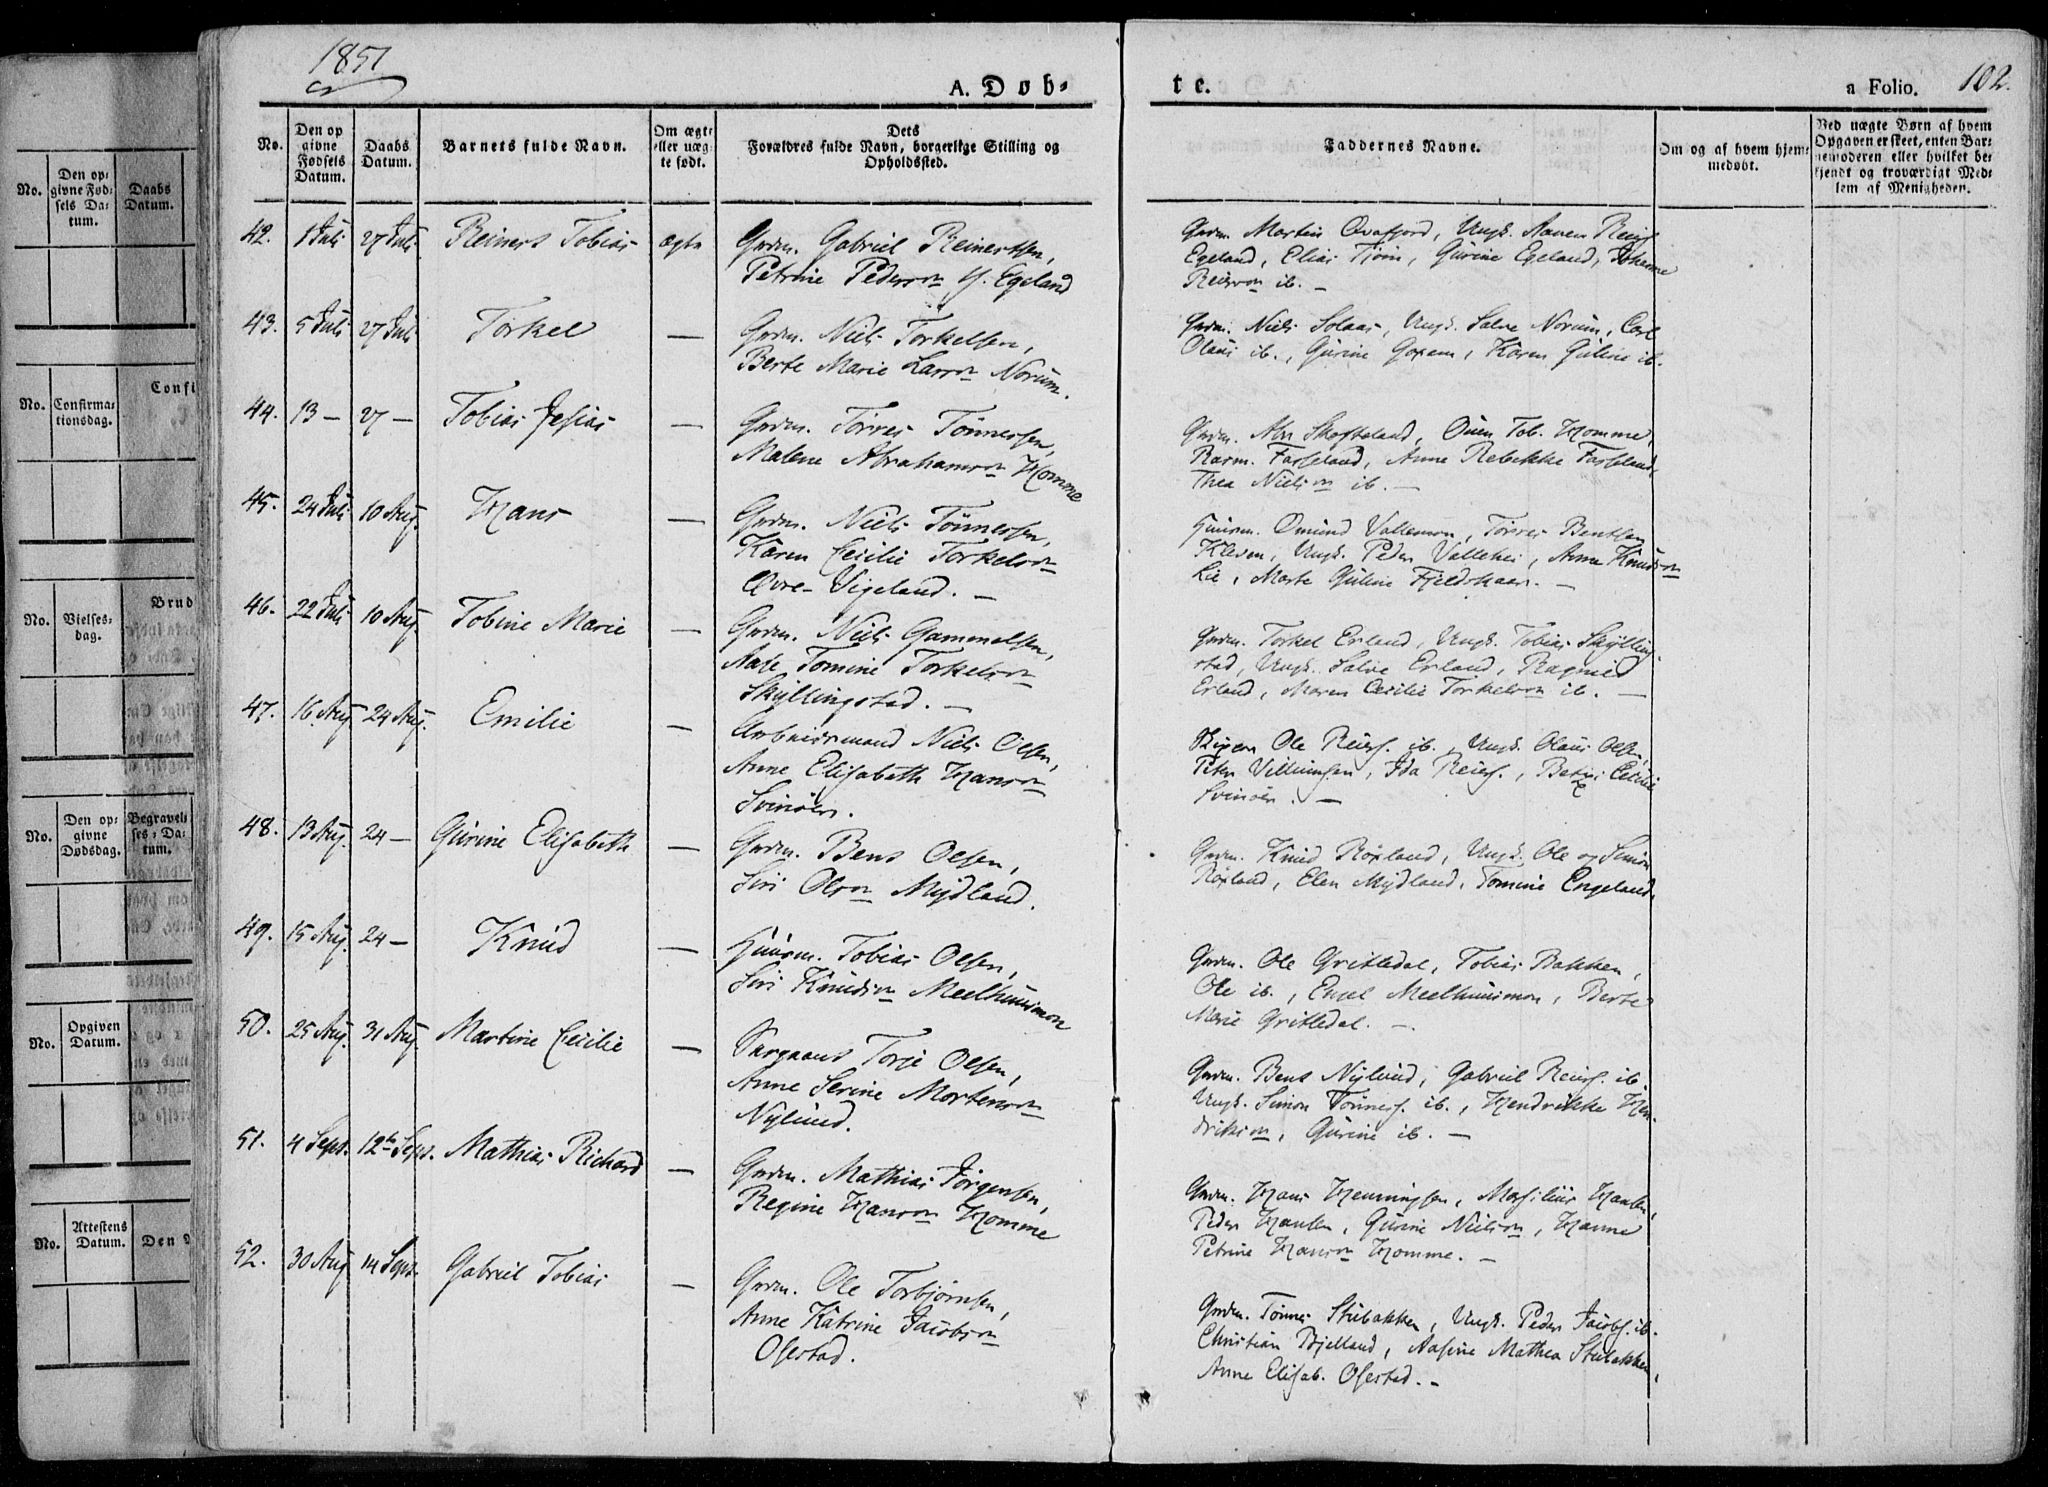 1851
A. Døb-
te.
a Folio. 102.
No.
Den op
givne
Fødsels
Datum.
Daabs
Datum.
Barnets fulde Navn.
Om ægte
eller uæg-
te født.
Dets
Forældres fulde Navn, borgerlige Stilling og
Opholdssted.
Faddernes Navne.
Om og af hvem hjem-
medøbt.
Ved uægte Børn af hvem
Opgaven er skeet, enten Bar-
nemoderen eller hvilket be-
kjendt og troværdigt Med-
lem af Menigheden.
42. 1 Juli 27 Juli Reinert Tobias ægte Grdm. Gabriel Reinertsen,
Petrine Pedersn Y. Egeland
Grdm. Martin Qvafjord, Ungk. Aanen Reiersf.
Egeland, Elias Tjøm, Gurine Egeland, Johanne
Reiersn ib. —
43. 5 Juli 27 Juli Torkel — Grdm. Niels Torkelsen,
Berte Marie Larsn Norum.
Grdm. Niels Solaas, Ungk. Salve Norum, Carl
Olaus ib., Gurine Goxem, Karen Guline ib.
44. 13 — 27 — Tobias Jesias — Grdm. Torres Tønnessen,
Malene Abrahamsn Homme
Grdm. Abr Skofteland, Ouen Tob. Homme,
Rasm. Fasseland, Anne Rebekke Fasseland,
Thea Nielsn ib. —
45. 24 Juli 10 Aug. Hans — Grdm. Niels Tønnessen,
Karen Cecilie Torkelsn
Øvre-Vigeland. —
Huusm. Omund Vallemon, Torres Bentsen
Kleven, Ungk. Peder Vallehei, Anne Knudsn
Lie, Marte Guline Fjeldskaar. —
46. 22 Juli 10 Aug. Tobine Marie — Grdm. Niels Gammelsen,
Aase Tomine Torkelsn
Skyllingstad. —
Grdm. Torkel Erland, Ungk. Tobias Skylling-
stad, Ungk. Salve Erland, Ragnild
Erland, Maren Cecilie Torkelsn ib. —
47. 16 Aug 24 Aug. Emilie — Arbeidsmand Niels Olsen,
Anne Elisabeth Hansn
Svinøer.
Skipper Ole Reiersf. ib., Ungk. Olaus Olsen,
Peter Villumsen, Ida Reiersf., Cecilie
Svinøer. —
48. 13 Aug. 24 — Gurine Elisabeth — Grdm. Bent Olsen,
Siri Olsn Mydland.
Grdm. Knud Røxland, Ungk. Ole og Simon
Røxland, Elen Mydland, Tomine Engeland.
49. 15 Aug. 24 — Knud — Huusm. Tobias Olsen,
Siri Knudsn Meelhuusmon
Grdm. Ole Gritledal, Tobias Bakken,
Ole ib., Engel Meelhuusmon, Berte
Marie Gritledal. —
50. 25 Aug. 31 Aug. Martine Cecilie — Sergeant Torje Olsen,
Anne Serine Mortensn
Nylund.
Grdm. Bent Nylund, Gabriel Reiersf. ib.
Ungk. Simon Tønnesf. ib., Hendrikke Hen-
driksn, Gurine ib. —
51. 4 Sept. 12te Sept. Mathias Richard — Grdm. Mathias Jørgensen,
Regine Hansn Homme
Grdm. Hans Henningsen, Hansen,
Peder Hansen, Gurine Nielsn, Hanne
Petrine Hansn Homme. —
52. 30 Aug 14 Sept. Gabriel Tobias — Grdm. Ole Torbjørnsen,
Anne Katrine Jacobsn
Ofestad.
Grdm. Tønnes Stubakken, Ungk. Peder Jacobsf. ib.
Christian Bjelland, Aasine Mathea Stubakken,
Anne Elisab. Ofestad. —
No.
Den op-
givne Fød-
sels Da-
tum.
Daabs
Datum.
Confi
No.
Confirma-
tionsdag.
Brud
No.
Vielses-
dag.
No.
Den op-
givne
Dødsdag.
Begravel-
ses-Da-
tum.
No.
Opgiven
Datum.
No.
Attestens
Datum.
Den